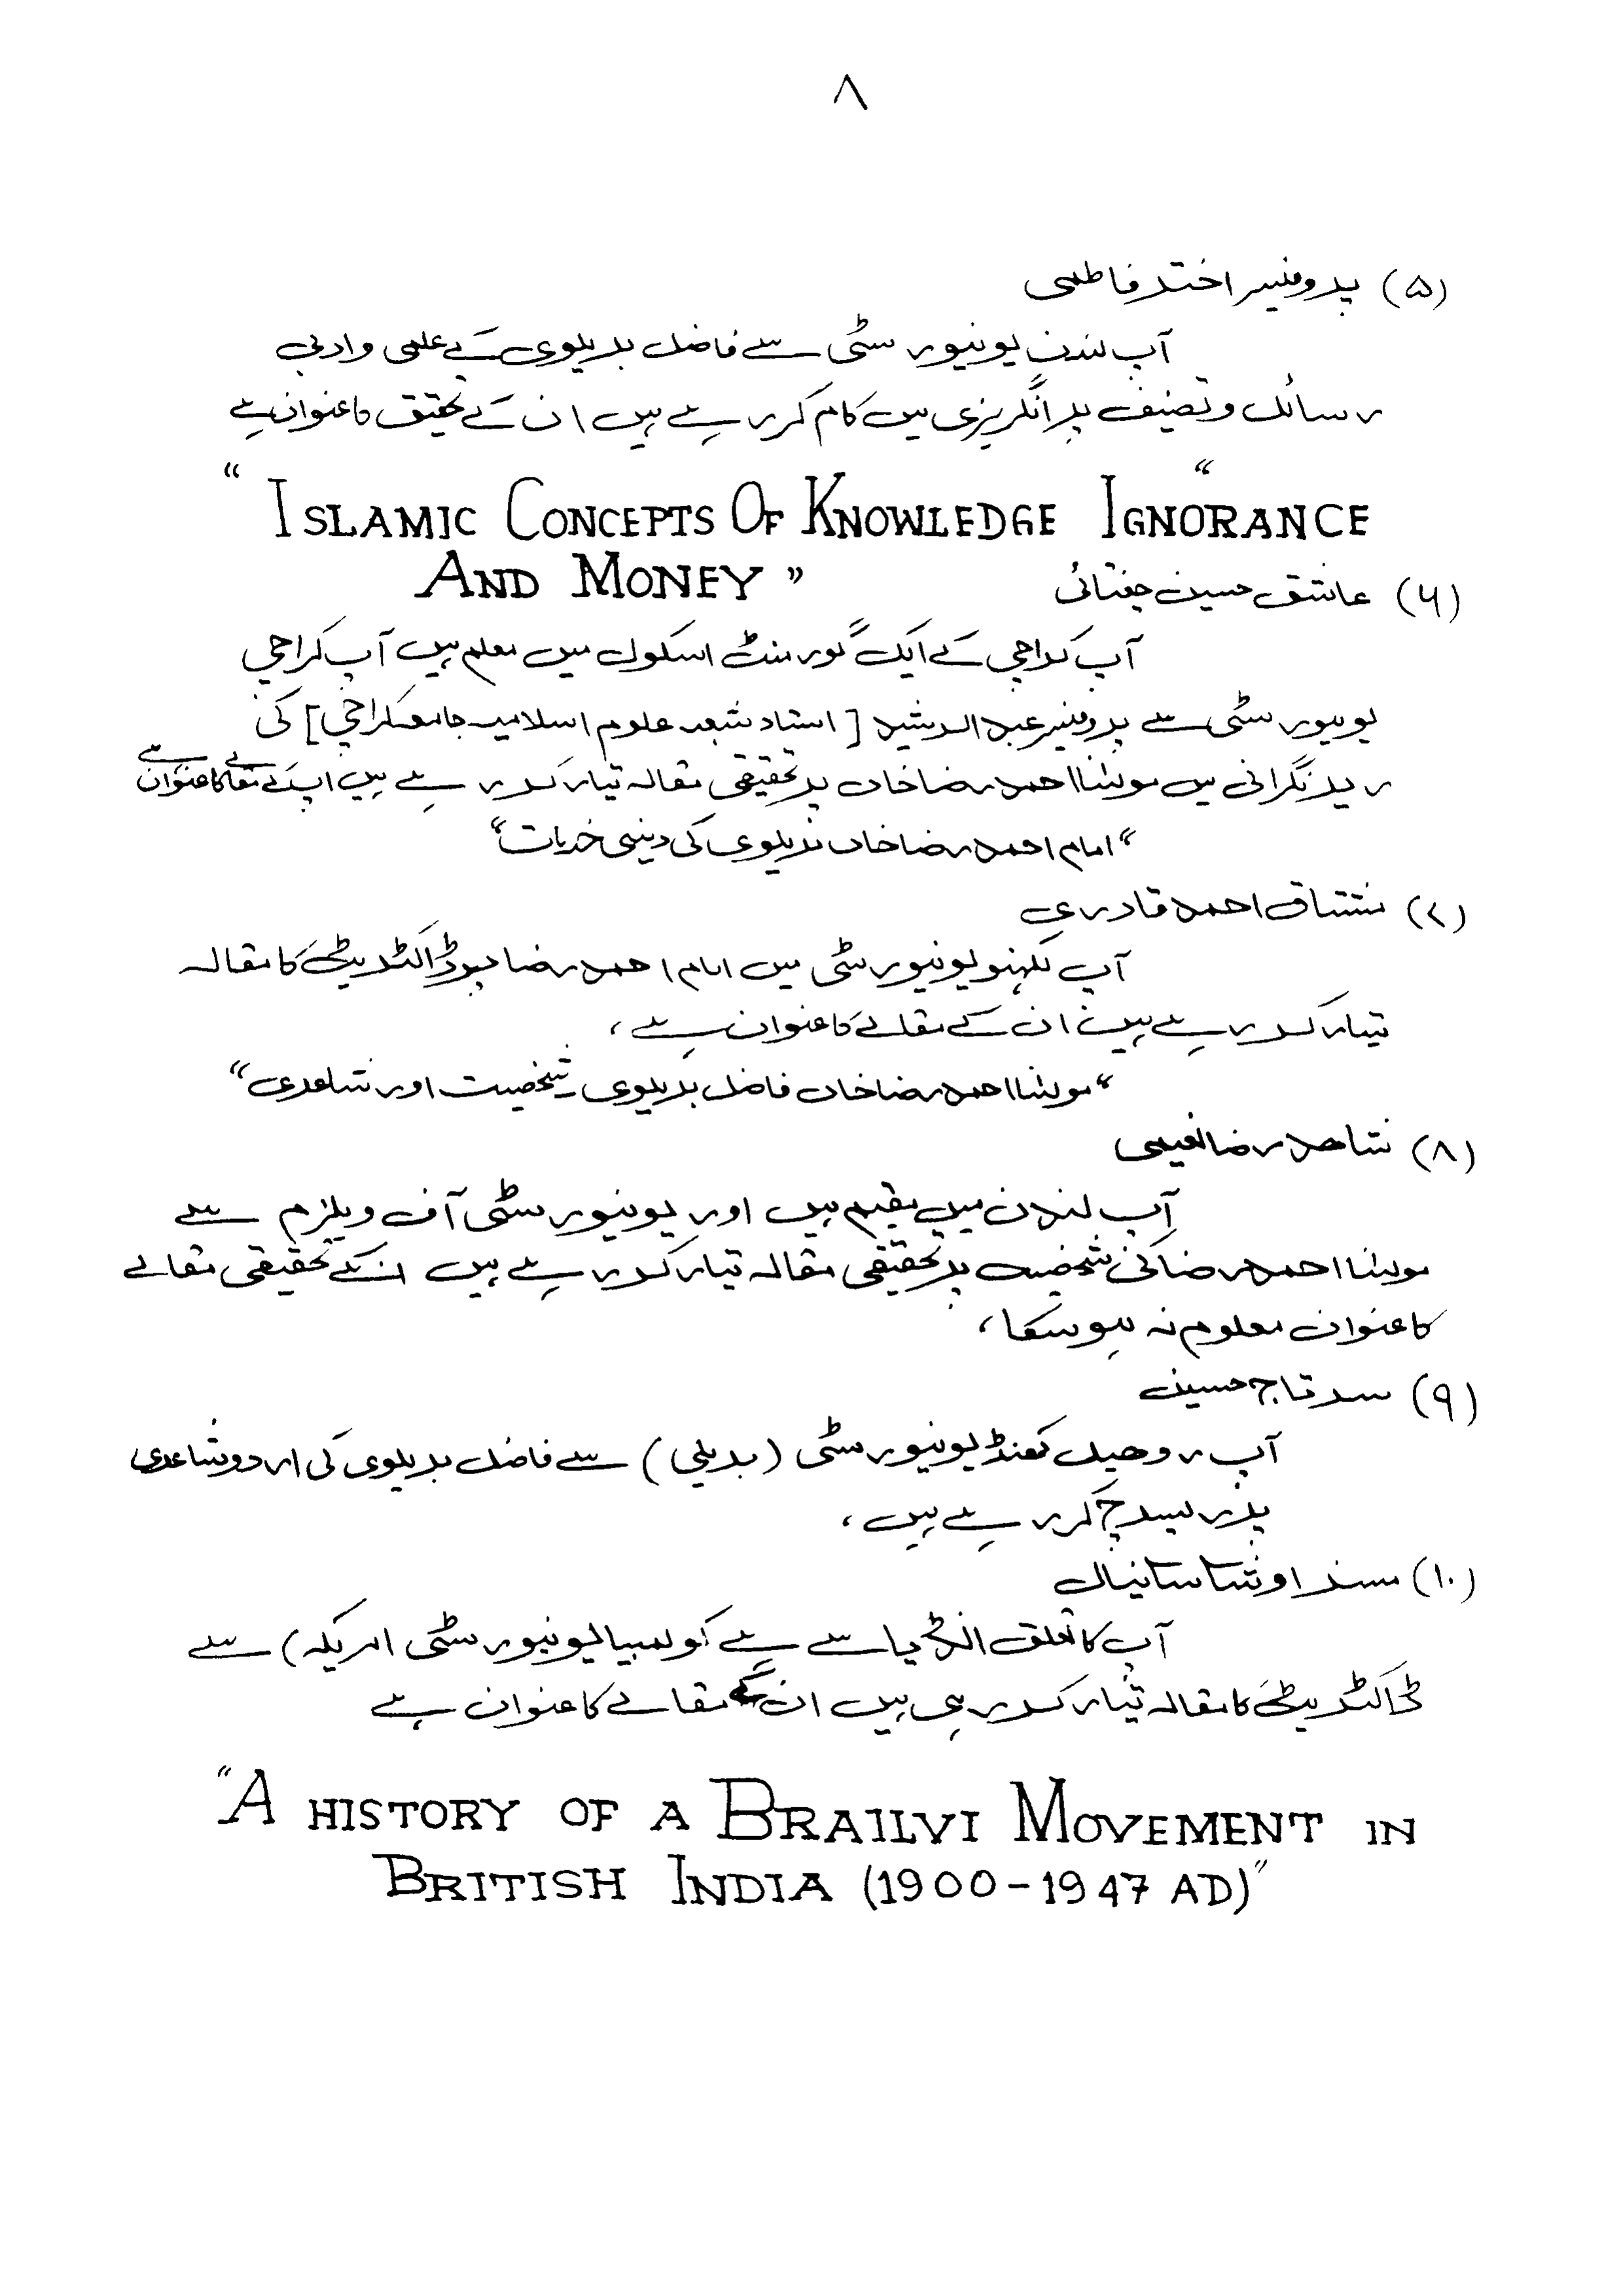 ۸
(۵) پروفیسر اختر فاطمی
آپ لندن یونیورسٹی سے فاضل بریلوی کے علمی و ادبی
رسائل و تصنیف پر انگریزی میں کام کر رہے ہیں ان کے تحقیق کا عنوان ہے
“ ISLAMIC CONCEPTS OF KNOWLEDGE “ IGNORANCE
AND MONEY ”
(۶) عاشق حسین چغتائی
آپ کراچی کے ایک گورمنٹ اسکول میں معلم ہیں آپ کراچی
یونیورسٹی سے پروفیسر عبدالرشید [ استاد شعبہ علوم اسلامیہ جامعہ کراچی ] کی
زیر نگرانی میں مولٰنا احمد رضا خاں پر تحقیقی مقالہ تیار کر رہے ہیں آپ کے مقالے کا عنوان ہے
“امام احمد رضا خاں بریلوی کی دینی خدمات“
(۷) مشتاق احمد قادری
آپ لکہنو یونیورسٹی میں امام احمد رضا پر ڈاکٹریٹ کا مقالہ
تیار کر رہے ہیں ان کے مقالے کا عنوان ہے ،
“مولٰنا احمد رضا خاں فاضل بریلوی شخصیت اور شاعری“
(۸) شاھد رضا نعیمی
آپ لندن میں مقیم ہیں اور یونیورسٹی آف ویلزم سے
مولٰنا احمد رضا کی شخصیت پر تحقیقی مقالہ تیار کر رہے ہیں ان کے تحقیقی مقالے
کا عنوان معلوم نہ ہو سکا ،
(۹) سرتاج حسین
آپ روحیل کھنڈ یونیورسٹی (بریلی) سے فاضل بریلوی کی اردو شاعری
پر ریسرچ کر رہے ہیں ،
(۱۰) مسز اوشا سانیال
آپ کا تعلق انڈیا سے ہے کولمبیا یونیورسٹی امریکہ) سے
ڈاکٹریٹ کا مقالہ تیار کر رہی ہیں ان کے مقالے کا عنوان ہے
“A HISTORY OF A BRAILVI MOVEMENT IN
BRITISH INDIA (1900-1947 AD)”